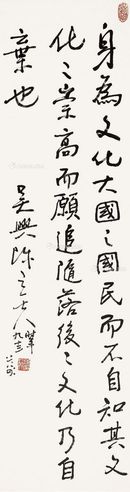 身為文化大國之國民而不自知其文
化之崇高而願追隨落後之文化乃自
棄也
吳興陳立夫